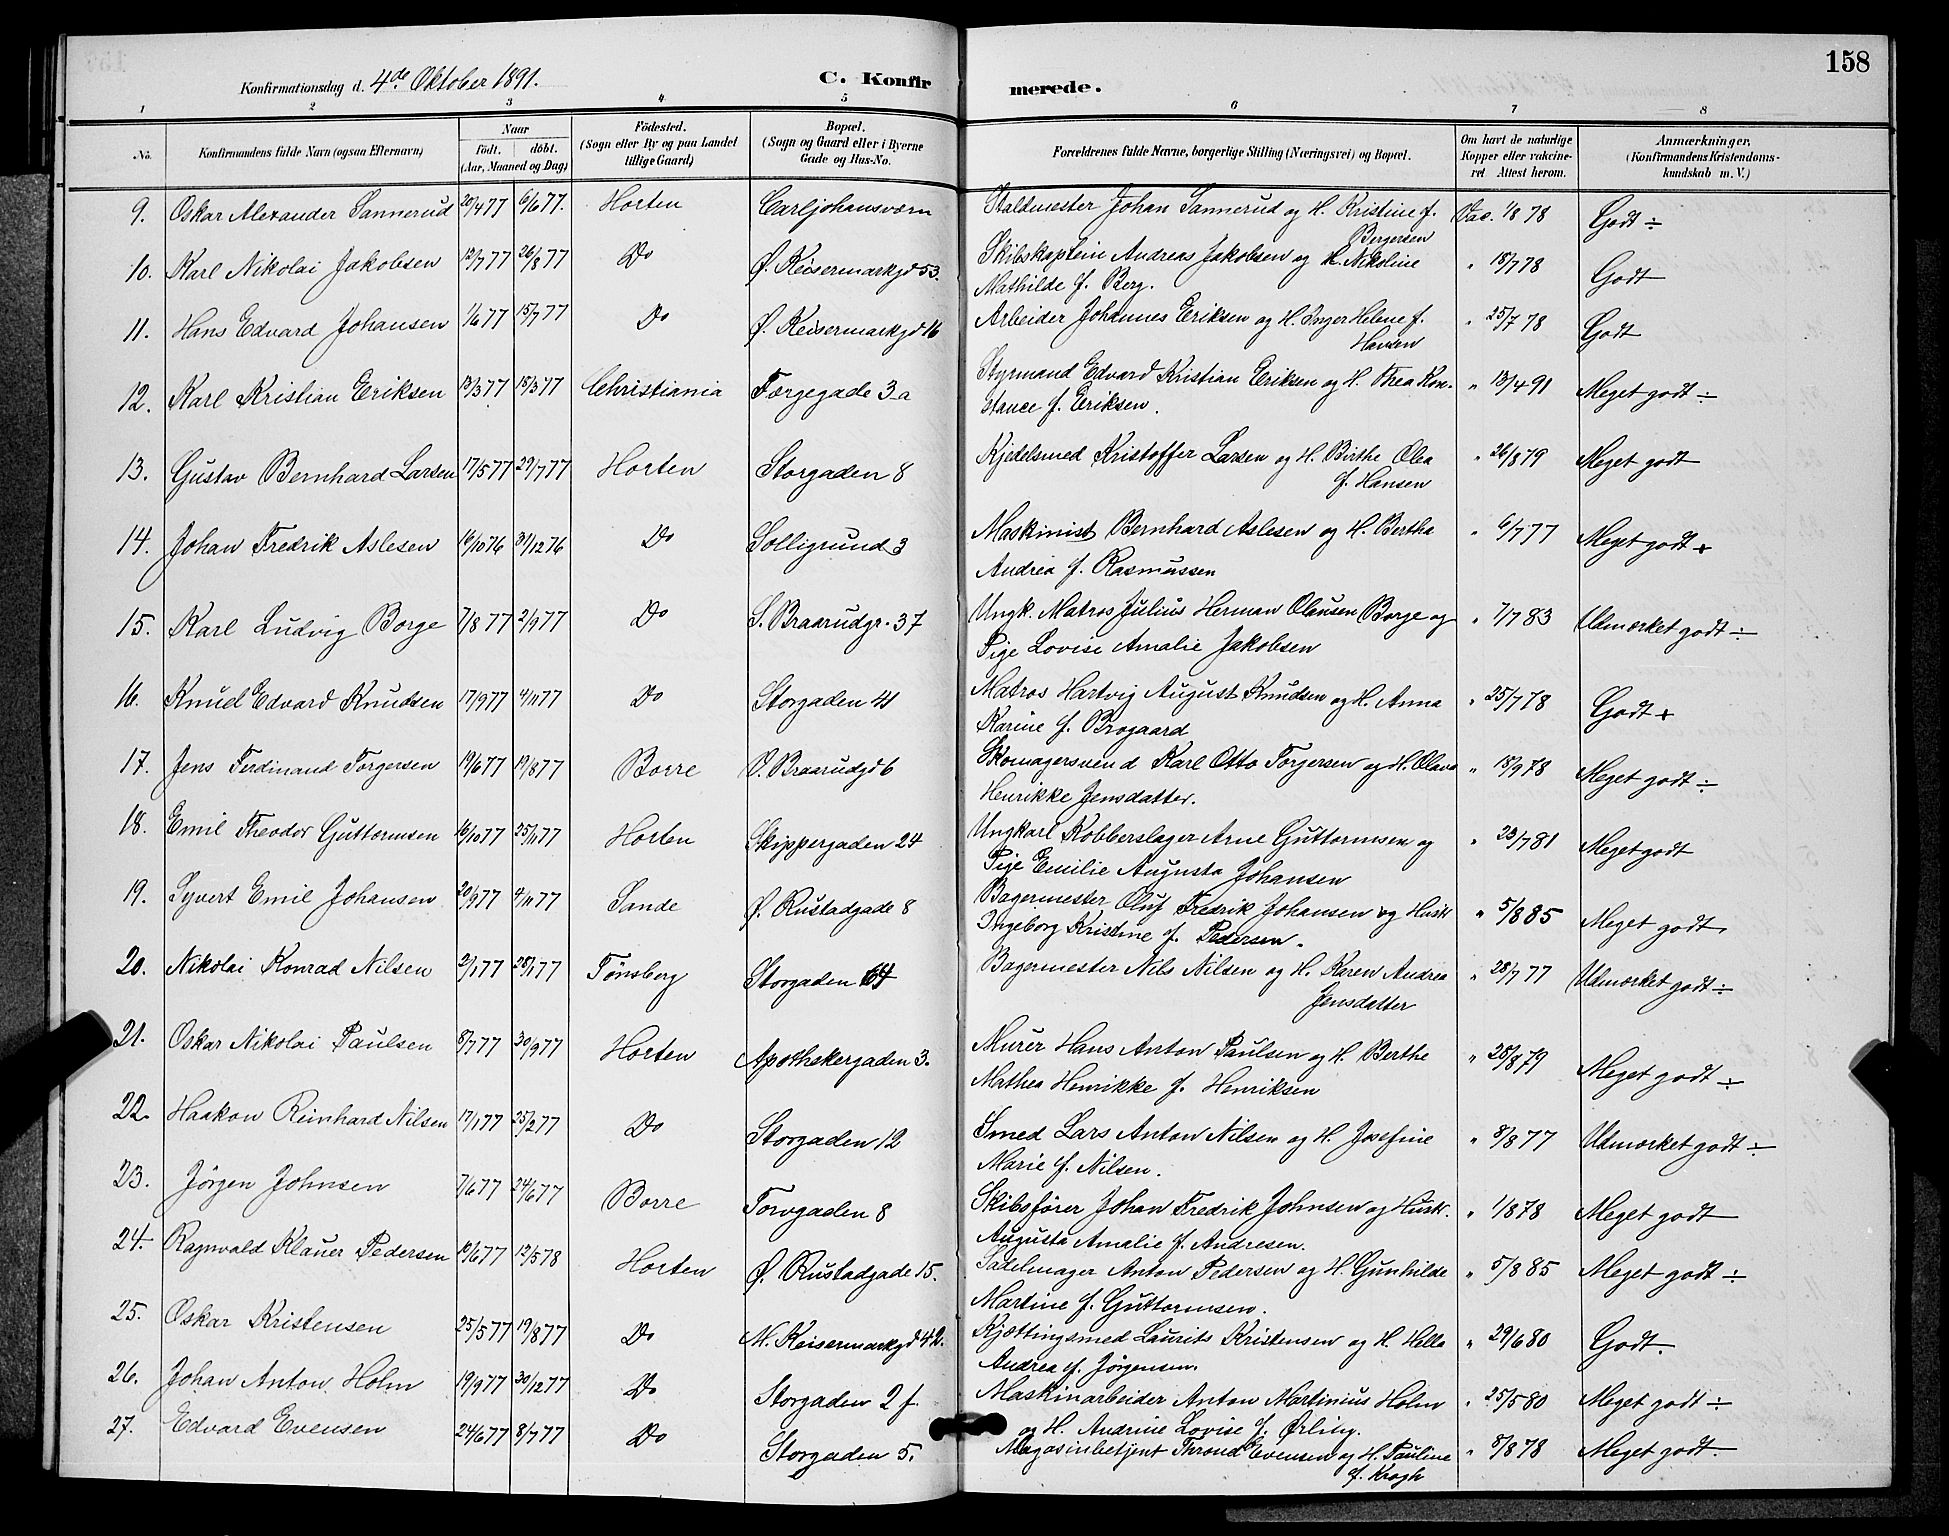 158
Konfirmationsdag d. 4de Oktober 1891. C. Konfirmerede.
1 2 3 4 5 6 7 8
No. Konfirmandens fulde Navn (ogsaa Efternavn) Naar født. døbt. (Aar, Maaned og Dag) Fødested. (Sogn eller By og paa Landet tillige Gaard) Bopæl. (Sogn og Gaard eller i Byerne Gade og Hus-No. Forældrenes fulde Navne, borgerlige Stilling (Næringsvei) og Bopæl. Om havt de naturlige Kopper eller vakcineret Attest herom. Anmærkninger, (Konfirmandens Kristendomskundskab m. V.)
9. Oskar Alexander Sannerud 20/4 77 6/6 77. Horten Carljohansværn Staldmester Johan Sannerud og H. Kristine f. Bergersen Vac. 1/8 78 Godt ÷
10. Karl Nikolai Jakobsen 12/7 77 26/8 77 Do Ø. Keisermarkgd 53. Skibskaptein Andreas Jakobsen og H. Nikoline
Mathilde f. Berg. " 18/7 78 Godt
11. Hans Edvard Johansen 1/6 77 15/7 77 Do Ø. Keisermarkgd 16 Arbeider Johannes Eriksen og H. Inger Helene f.
Hansen " 25/7 78 Godt
12. Karl Kristian Eriksen 13/3 77 18/3 77 Christiania Færgegade 3a Styrmand Edvard Kristian Eriksen og H. Thea Kon-
stance f. Eriksen. " 13/4 91 Meget godt ÷
13. Gustav Bernhard Larsen 17/5 77 29/7 77 Horten Storgaden 8 Kjedelsmed Kristoffer Larsen og H. Birthe Olea
f. Hansen " 26/8 79 Meget godt
14. Johan Fredrik Aslesen 16/10 76 31/12 76 Do Solligrund 3 Maskinist Bernhard Aslesen og H. Bertha
Andrea f. Rasmussen " 6/7 77 Meget godt +
15. Karl Ludvig Borge 7/8 77 2/9 77 Do S. Braarudgr. 37 Ungk. Matros Julius Herman Olausen Borge og
Pige Lovise Amalie Jakobsen " 7/7 83 Udmærket godt ÷
16. Knud Edvard Knudsen 17/9 77 4/11 77 Do Storgaden 41 Matros Hartvig August Knudsen og H. Anna
Karine f. Brogaard " 25/7 78 Godt +
17. Jens Ferdinand Torgersen 19/6 77 19/8 77 Borre V. Braarudgd 6 Skomagersvend Karl Otto Torgersen og H. Olava
Henrikke Jensdatter. " 18/9 78 Meget godt ÷
18. Emil Theodor Guttormsen 16/10 77 25/11 77 Horten Skippergaden 24 Ungkarl Kobberslager Arne Guttormsen og
Pige Emilie Augusta Johansen " 23/7 81 Meget godt
19. Syvert Emil Johansen 20/9 77 4/11 77 Sande Ø. Rustadgade 8 Bagermester Oluf Fredrik Johansen og Hustr
Ingeborg Kristine f. Pedersen. " 5/8 85 Meget godt
20. Nikolai Konrad Nilsen 2/1 77 28/1 77 Tønsberg Storgaden 64 Bagermester Nils Nilsen og H. Karen Andrea
Jensdatter " 28/7 77 Udmærket godt ÷
21. Oskar Nikolai Paulsen 8/7 77 30/9 77 Horten Apothekergaden 3. Murer Hans Anton Paulsen og H. Berthe
Mathea Henrikke f. Henriksen " 28/8 79 Meget godt ÷
22. Haakon Reinhard Nilsen 17/1 77 25/2 77 Do Storgaden 12 Smed Lars Anton Nilsen og H. Josefine
Marie f. Nilsen. " 8/8 77 Udmærket godt ÷
23. Jörgen Johnsen 7/6 77 24/6 77 Borre Torvgaden 8 Skibsfører Johan Fredrik Johnsen og Hustr.
Augusta Amalie f. Andresen. " 1/8 78 Meget godt
24. Ragnvald Klauer Pedersen 10/6 77 12/5 78 Horten Ø. Rustadgade 15. Sadelmager Anton Pedersen og H. Gunhilde
Martine f. Guttormsen. " 5/8 85 Meget godt ÷
25. Oskar Kristensen 25/5 77 19/8 77 Do M. Keisermarkgd 42. Kjættingsmed Laurits Kristensen og H. Hella
Andrea f. Jørgensen. " 29/6 80 Godt.
26. Johan Anton Holm 19/9 77 30/12 77 Do Storgaden 2 f. Maskinarbeider Anton Martinius Holm
og H. Andrine Lovise f. Ørling. " 25/5 80 Meget godt ÷
27. Edvard Evensen 24/6 77 8/7 77 Do Storgaden 5. Magasinbetjent Thrond Evensen og H. Pauline
f. Krogh " 8/8 78 Meget godt.